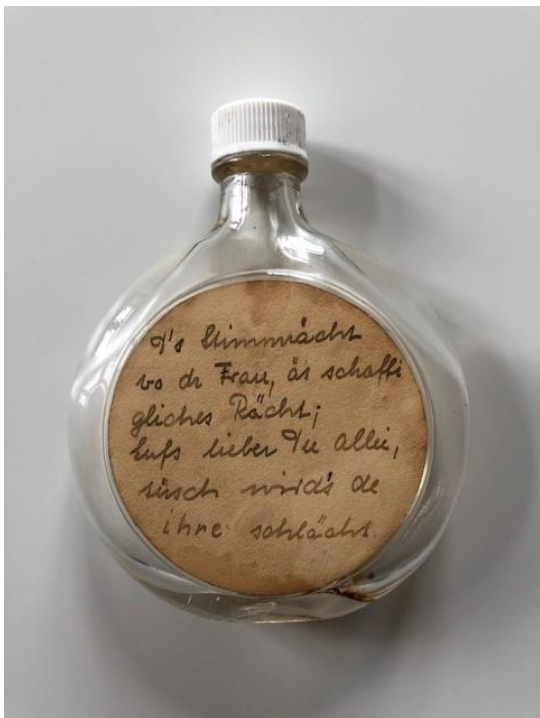 D's Stimmrächt
vo dr Frau, äs schaffi
gliches Rächt;
Sufs lieber Du allei,
süsch wird's de
ihre schlächt.